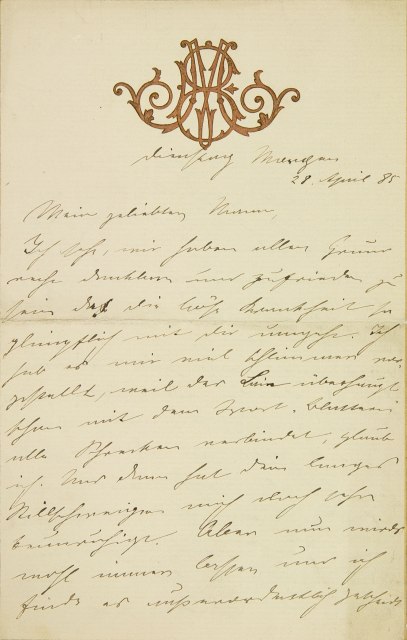 Dienstag Morgen
28. April 85
Mein geliebter Mann,
Ich sehe, wir haben allen Grund
recht dankbar und zufrieden zu
sein daß die böse Krankheit so
glimpflich mit dir umgeht. Ich
hab es mir viel schlimmer vor-
gestellt, weil der Laie überhaupt
schon mit dem Wort
alle Schrecken verbindet, glaube
ich. Und dann hat dein langes
Stillschweigen mich doch sehr
beunruhigt. Aber nun wird's
wohl immer besser und ich
finde es außerordentlich gescheidt